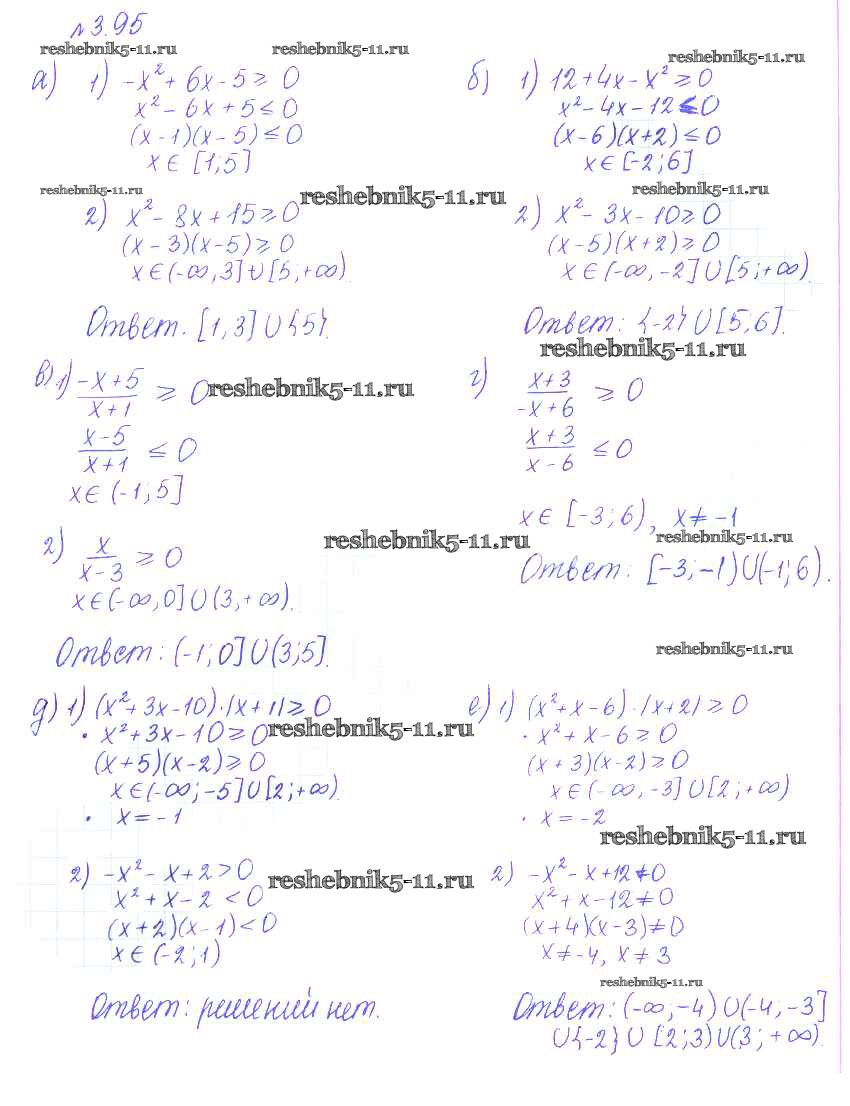 №3.95
reshebnik5-11.ru reshebnik5-11.ru reshebnik5-11.ru
а) 1) -x²+6x-5⩾0
x²-6x+5≤0
(x-1)(x-5)≤0
x∈[1;5]
reshebnik5-11.ru reshebnik5-11.ru
2) x²-8x+15⩾0
(x-3)(x-5)⩾0
x∈(-∞,3]∪[5;+∞).
Ответ. [1,3]∪{5}.
б) 1) 12+4x-x²⩾0
x²-4x-12≤0
(x-6)(x+2)≤0
x∈[-2;6]
reshebnik5-11.ru
2) x²-3x-10⩾0
(x-5)(x+2)⩾0
x∈(-∞,-2]∪[5;+∞).
Ответ: {-2}∪[5;6].
reshebnik5-11.ru
в) 1) (-x+5)/(x+1) ⩾ 0
reshebnik5-11.ru
(x-5)/(x+1) ≤ 0
x∈(-1;5]
2) x/(x-3) ⩾ 0
reshebnik5-11.ru
x∈(-∞,0]∪(3,+∞).
Ответ: (-1;0]∪(3;5].
г) (x+3)/(-x+6) ⩾ 0
(x+3)/(x-6) ≤ 0
x∈[-3;6), x≠-1
reshebnik5-11.ru
Ответ: [-3;-1)∪(-1;6).
reshebnik5-11.ru
д) 1) (x²+3x-10)·|x+1|⩾0
• x²+3x-10⩾0
reshebnik5-11.ru
(x+5)(x-2)⩾0
x∈(-∞;-5]∪[2;+∞).
• x=-1
2) -x²-x+2>0
x²+x-2<0
reshebnik5-11.ru
(x+2)(x-1)<0
x∈(-2;1)
Ответ: решений нет.
е) 1) (x²+x-6)·|x+2|⩾0
• x²+x-6⩾0
(x+3)(x-2)⩾0
x∈(-∞,-3]∪[2;+∞)
• x=-2
reshebnik5-11.ru
2) -x²-x+12≠0
x²+x-12≠0
(x+4)(x-3)≠0
x≠-4, x≠3
reshebnik5-11.ru
Ответ: (-∞;-4)∪(-4,-3]
∪{-2}∪[2;3)∪(3;+∞).